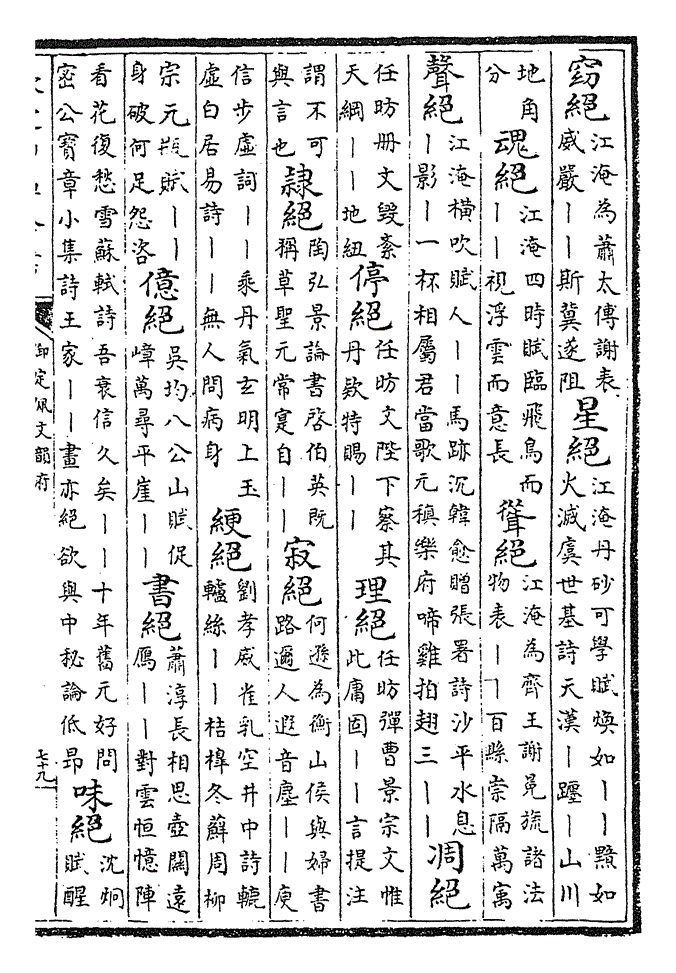 窈絕 江淹為蕭太傅謝表威嚴丨丨斯冀遂阻 星絕 江淹丹砂可學賦煥如丨丨黯如火滅虞世基詩天漢丨躔丨山川
地角分 魂絕 江淹四時賦臨飛鳥而丨丨視浮雲而意長 聳絕 江淹為齊王謝冕旒諸法物表丨丨百縣崇隔萬寓
聲絕 江淹橫吹賦人丨丨馬跡沉韓愈贈張署詩沙平水息丨影丨一杯相屬君當歌元稹樂府啼雞拍翅三丨丨 凋絕
任昉冊文毀紊天綱丨丨地紐 停絕 任昉文陛下察其丹款特賜丨丨 理絕 任昉彈曹景宗文惟此庸固丨丨言提注
謂不可與言也 隷絕 陶弘景論書啓伯英既稱草聖元常寔自丨丨 寂絕 何遜為衡山侯與婦書路邇人遐音塵丨丨庾
信步虛詞丨丨乘丹氣玄明上玉虛白居易詩丨丨無人問病身 綆絕 劉孝威雀乳空井中詩轆轤絲丨丨桔橰冬蘚周柳
宗元瓶賦丨丨身破何足怨咨 億絕 吳均八公山賦促嶂萬尋平崖丨丨 書絕 蕭淳長相思壺關遠鴈丨丨對雲恒憶陣
看花復愁雪蘇軾詩吾衰信久矣丨丨十年舊元好問密公寶章小集詩王家丨丨畫亦絕欲與中秘論低昂 味絕 沈炯賦醒
御定佩文韻府
七十九